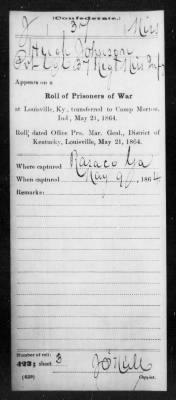 (Confederate.)
J 37 Miss
Hugh Johnson
Pvt Co I 37 Regt Miss Inf
Appears on a
Roll of Prisoners of War
at Louisville, Ky., transferred to Camp Morton,
Ind., May 21, 1864.
Roll dated Office Pro. Mar. Genl., District of
Kentucky, Louisville, May 21, 1864.
Where captured Resaca Ga
When captured May 9, 1864
Remarks:
Number of roll:
423; sheet 3
(639) Copyist.